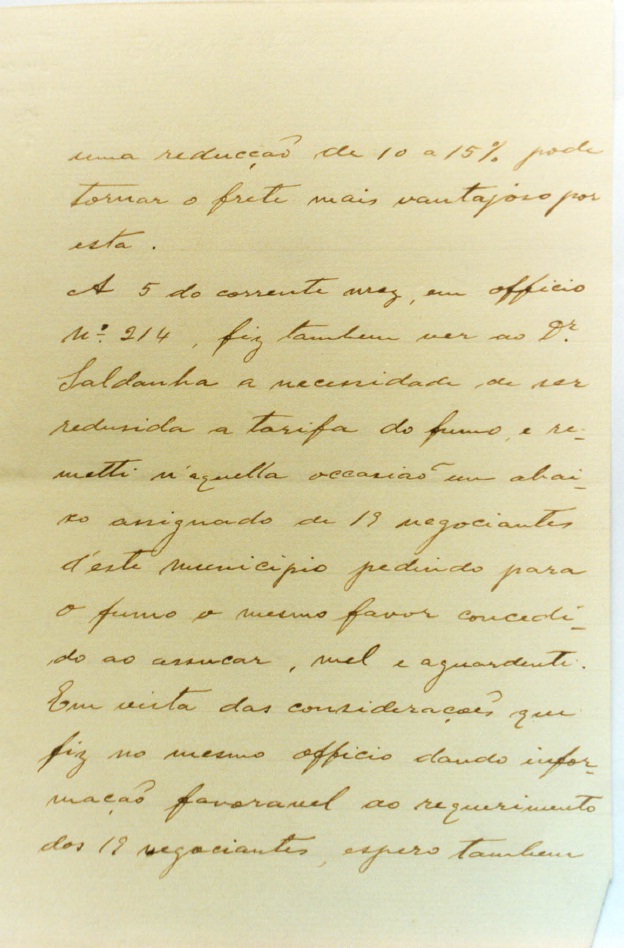 uma reducção de 10 a 15% pode
tornar o frete mais vantajoso por
esta.
A 5 do corrente mez, em officio
Nº. 214, fiz tambem ver ao Dr.
Saldanha a necessidade de ser
redusida a tarifa do fumo, e re-
metti n'aquella occasiaõ um abai-
xo assignado de 19 negociantes
d'este municipio pedindo para
o fumo o mesmo favor concedi-
do ao assucar, mel e aguardente.
Em vista das considerações que
fiz no mesmo officio dando infor-
mação favoravel ao requerimento
dos 19 negociantes, espero tambem